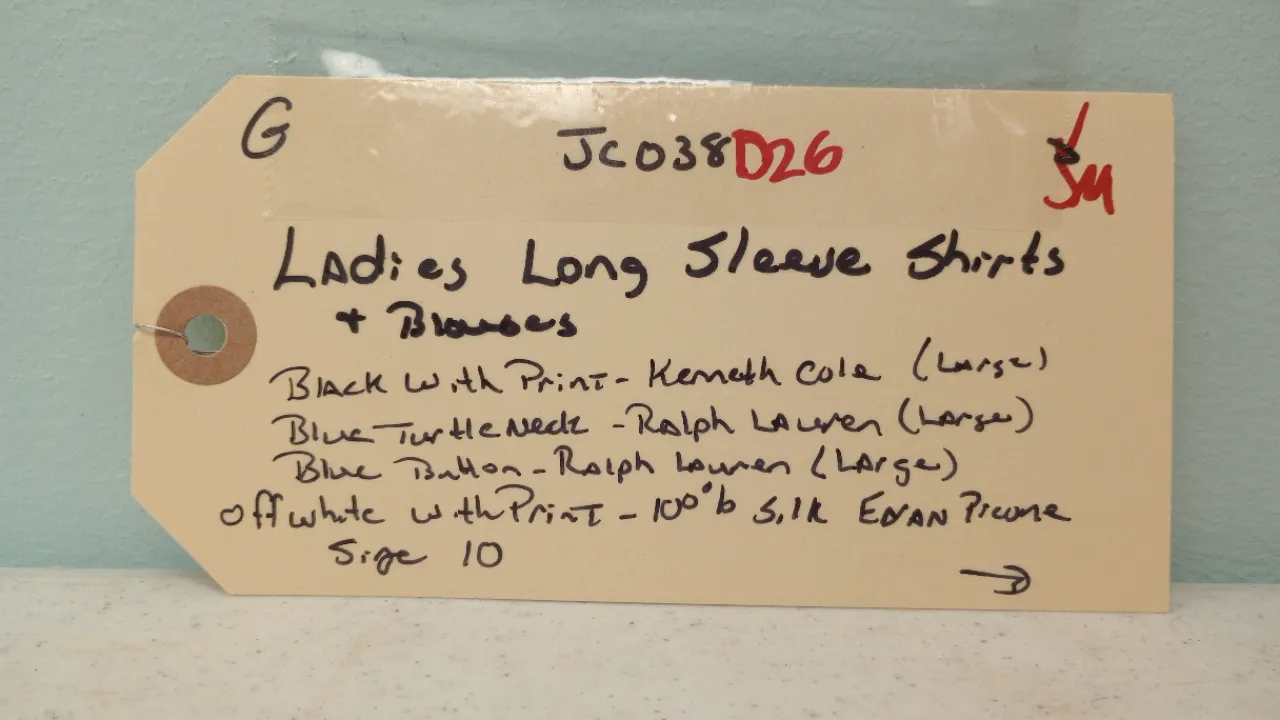 G JC038D26 JM
Ladies Long Sleeve Shirts
+ Blouses
Black with Print - Kenneth Cole (Large)
Blue Turtle Neck - Ralph Lauren (Large)
Blue Button - Ralph Lauren (Large)
Off white with Print - 100% Silk Evan Picone
Size 10
→